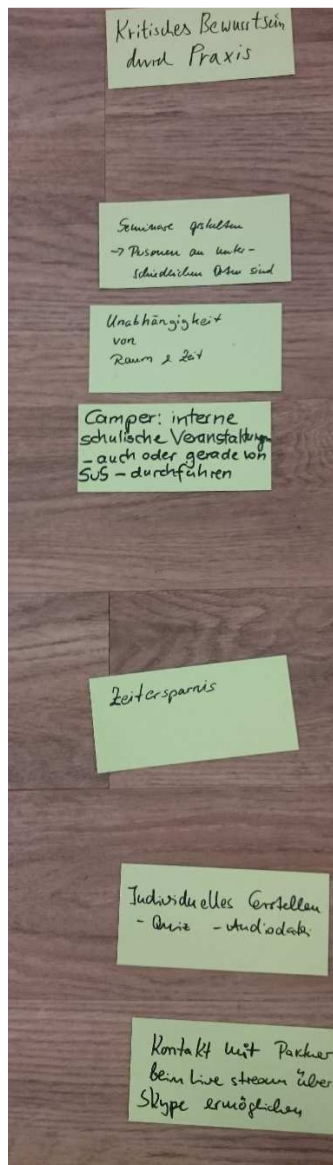 Kritisches Bewusstsein
durch Praxis
Seminare gestalten
→ Personen an unter-
schiedlichen Orten sind
Unabhängigkeit
von
Raum & Zeit
Camper: interne
schulische Veranstaltungen
– auch oder gerade von
SuS – durchführen
Zeitersparnis
Individuelles Erstellen
- Quiz - Audiodatei
Kontakt mit Partner
beim Live stream über
Skype ermöglichen